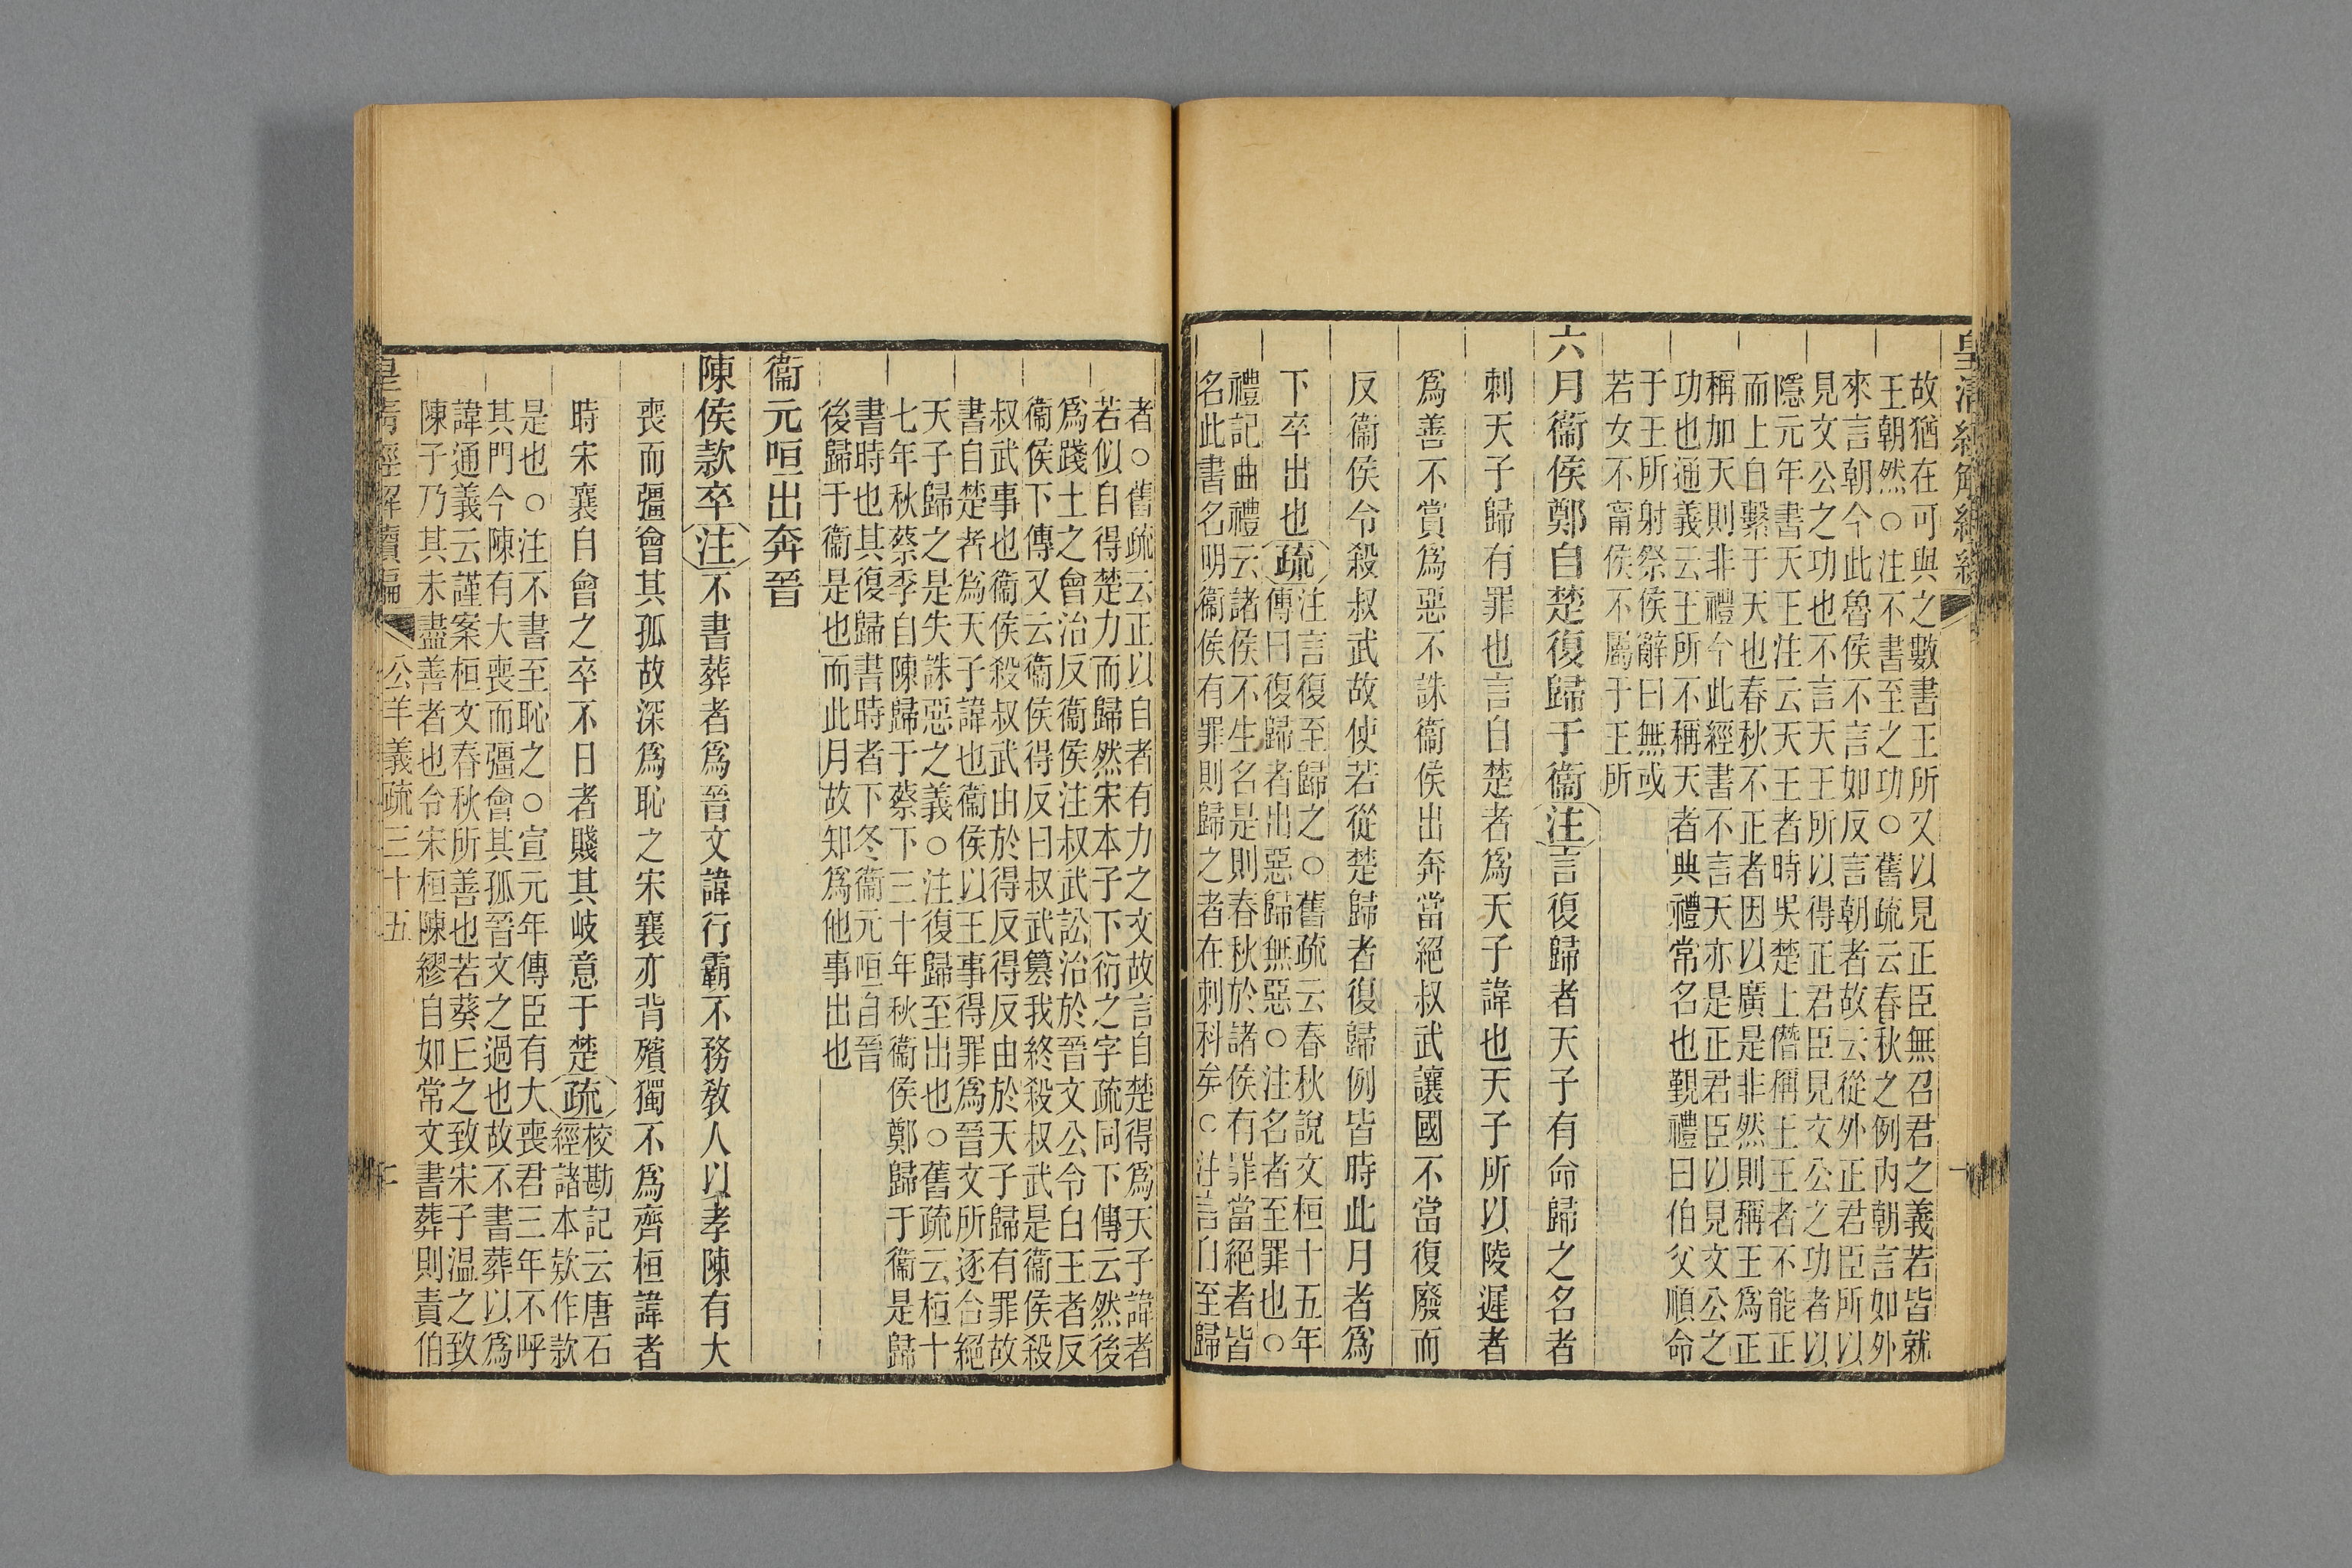 皇清經解續編
故猶在可與之數書王所又以見正臣無召君之義若皆就
王朝然○注不書至之功○舊疏云春秋之例內朝言如外
來言朝今此魯侯不言如反言朝者故云從外正君臣所以
見文公之功也不言天王所以得正君臣見文公之功者以
隱元年書天王注云天王者時吳楚上僭稱王王者不能正
而上自繫于天也春秋不正者因以廣是非然則稱王為正
稱加天則非禮今此經書不言天亦是正君臣以見文公之
功也通義云王所不稱天者典禮常名也覲禮曰伯父順命
于王所射祭侯辭曰無或
若女不甯侯不屬于王所
六月衞侯鄭自楚復歸于衞注言復歸者天子有命歸之名者
刺天子歸有罪也言自楚者爲天子諱也天子所以陵遲者
爲善不賞爲惡不誅衞侯出奔當絕叔武讓國不當復廢而
反衞侯令殺叔武故使若從楚歸者復歸例皆時此月者爲
下卒出也疏注言復至歸之○舊疏云春秋說文桓十五年
傳曰復歸者出惡歸無惡○注名者至罪也○
禮記曲禮云諸侯不生名是則春秋於諸侯有罪當絕者皆
名此書名明衞侯有罪則歸之者在刺科矣○注言自至歸
者○舊疏云正以自者有力之文故言自楚得爲天子諱者
若似自得楚力而歸然宋本子下衍之字疏同下傳云然後
爲踐土之會治反衞侯注叔武訟治於晉文公令白王者反
衞侯下傳又云衞侯得反曰叔武篡我終殺叔武是衞侯殺
叔武事也衞侯殺叔武由於得反得反由於天子歸有罪故
書自楚者爲天子諱也衞侯以王事得罪爲晉文所逐合絕
天子歸之是失誅惡之義○注復歸至出也○舊疏云桓十
七年秋蔡季自陳歸于蔡下三十年秋衞侯鄭歸于衞是歸
書時也其復歸書時者下冬衞元咺自晉
後歸于衞是也而此月故知爲他事出也
衞元咺出奔晉
陳侯款卒注不書葬者爲晉文諱行霸不務敎人以孝陳有大
喪而彊會其孤故深爲恥之宋襄亦背殯獨不爲齊桓諱者
時宋襄自會之卒不日者賤其歧意于楚疏校勘記云唐石
經諸本欵作款
是也○注不書至恥之○宣元年傳臣有大喪君三年不呼
其門今陳有大喪而彊會其孤晉文之過也故不書葬以爲
諱通義云謹案桓文春秋所善也若葵丘之致宋子溫之致
陳子乃其未盡善者也令宋桓陳繆自如常文書葬則責伯
皇清經解續編　公羊義疏三十五　二